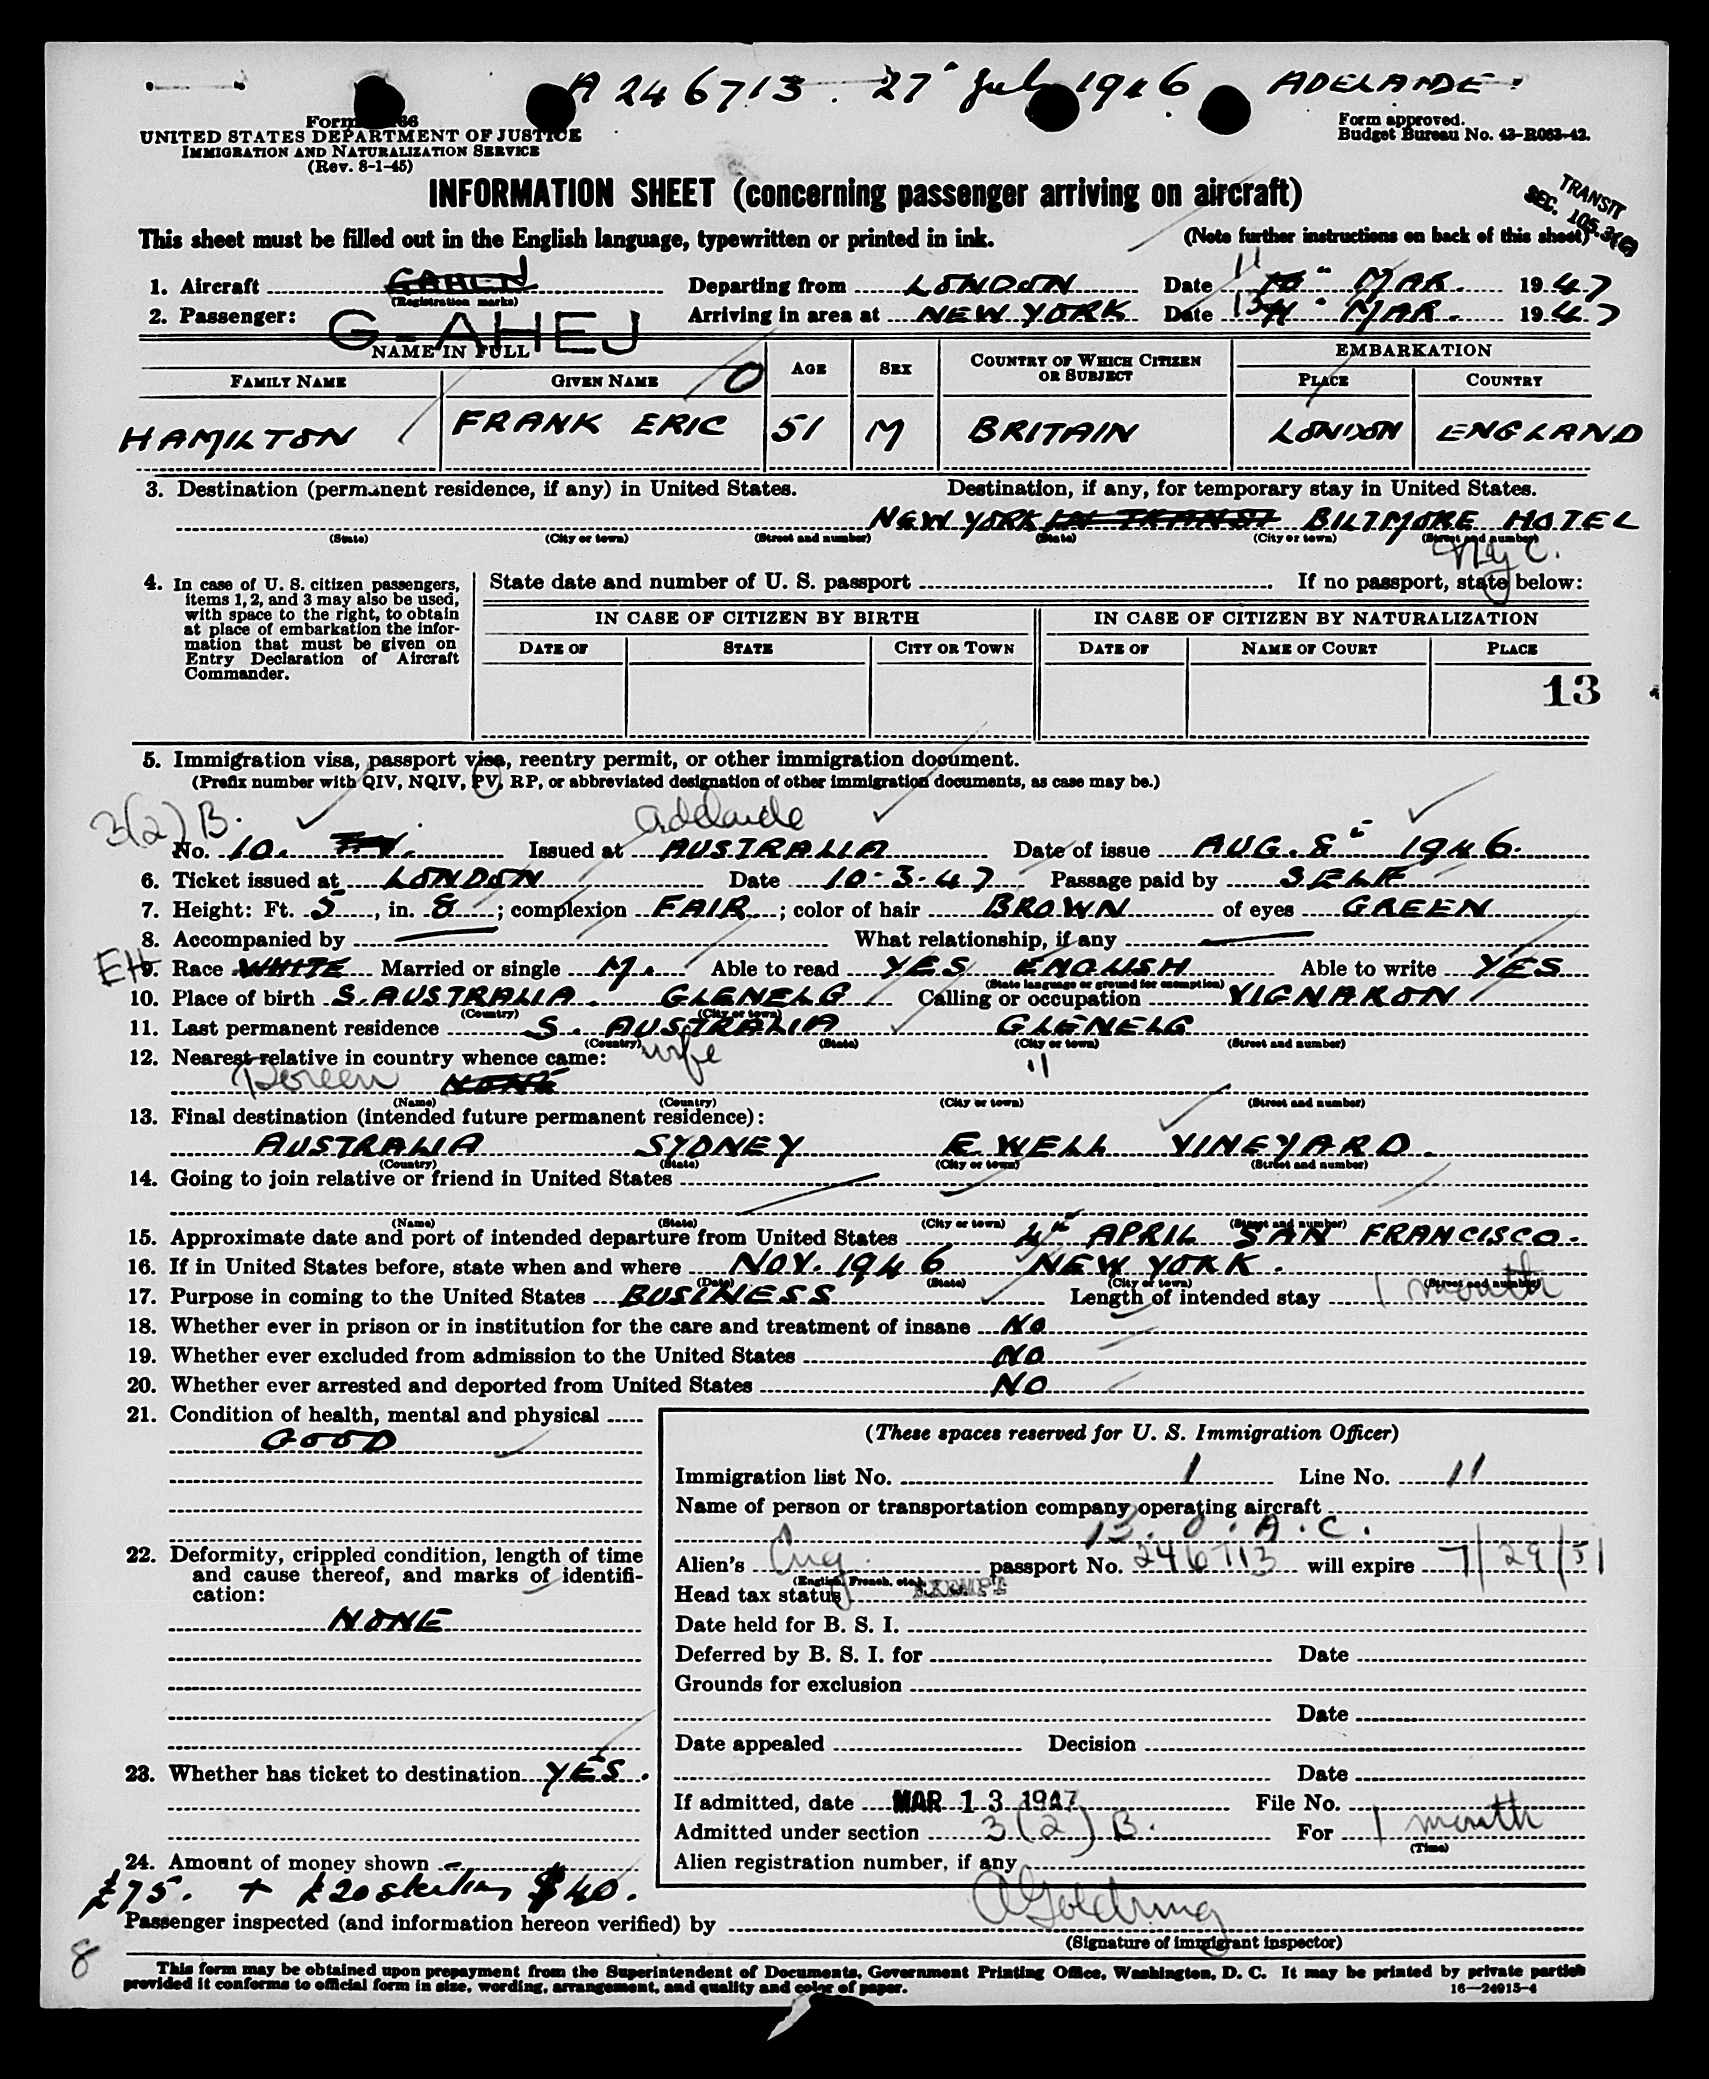 A 246713. 27" July 1946 ADELAIDE.
Form
UNITED STATES DEPARTMENT OF JUSTICE
IMMIGRATION AND NATURALIZATION SERVICE
(Rev. 8-1-45)
Form approved.
Budget Bureau No. 43-R063-42.
INFORMATION SHEET (concerning passenger arriving on aircraft)
TRANSIT
SEC. 105.3(c)
This sheet must be filled out in the English language, typewritten or printed in ink. (Note further instructions on back of this sheet)
1. Aircraft Departing from LONDON Date 11" MAR. 1947
(Registration marks)
2. Passenger: G-AHEJ Arriving in area at NEW YORK Date 13" MAR. 1947
NAME IN FULL AGE SEX COUNTRY OF WHICH CITIZEN OR SUBJECT EMBARKATION
FAMILY NAME GIVEN NAME O PLACE COUNTRY
HAMILTON FRANK ERIC 51 M BRITAIN LONDON ENGLAND
3. Destination (permanent residence, if any) in United States. Destination, if any, for temporary stay in United States.
NEW YORK IN TRANSIT BILTMORE HOTEL
(State) (City or town) (Street and number) (State) (City or town) (Street and number)
NYC.
4. In case of U. S. citizen passengers, items 1, 2, and 3 may also be used, with space to the right, to obtain at place of embarkation the information that must be given on Entry Declaration of Aircraft Commander.
State date and number of U. S. passport If no passport, state below:
IN CASE OF CITIZEN BY BIRTH IN CASE OF CITIZEN BY NATURALIZATION
DATE OF STATE CITY OR TOWN DATE OF NAME OF COURT PLACE
13
5. Immigration visa, passport visa, reentry permit, or other immigration document.
(Prefix number with QIV, NQIV, PV, RP, or abbreviated designation of other immigration documents, as case may be.)
3(2) B. Adelaide
No. 10. Issued at AUSTRALIA Date of issue AUG. 8" 1946.
6. Ticket issued at LONDON Date 10-3-47 Passage paid by SELF
7. Height: Ft. 5, in. 8; complexion FAIR; color of hair BROWN of eyes GREEN
8. Accompanied by — What relationship, if any —
EH
9. Race WHITE Married or single M. Able to read YES ENGLISH Able to write YES
(State language or ground for exemption)
10. Place of birth S. AUSTRALIA. GLENELG Calling or occupation VIGNARON
(Country) (City or town)
11. Last permanent residence S. AUSTRALIA GLENELG
(Country) (State) (City or town) (Street and number)
12. Nearest relative in country whence came: wife
Doreen NONE "
(Name) (Country) (City or town) (Street and number)
13. Final destination (intended future permanent residence):
AUSTRALIA SYDNEY EWELL VINEYARD.
(Country) (State) (City or town) (Street and number)
14. Going to join relative or friend in United States
(Name) (State) (City or town) (Street and number)
15. Approximate date and port of intended departure from United States 4" APRIL SAN FRANCISCO.
16. If in United States before, state when and where NOV. 1946 NEW YORK.
(Date) (State) (City or town) (Street and number)
17. Purpose in coming to the United States BUSINESS Length of intended stay 1 month
18. Whether ever in prison or in institution for the care and treatment of insane NO
19. Whether ever excluded from admission to the United States NO
20. Whether ever arrested and deported from United States NO
21. Condition of health, mental and physical
GOOD
22. Deformity, crippled condition, length of time
and cause thereof, and marks of identifi-
cation:
NONE
23. Whether has ticket to destination YES.
24. Amount of money shown
£75. + £20 sterling $40.
(These spaces reserved for U. S. Immigration Officer)
Immigration list No. 1 Line No. 11
Name of person or transportation company operating aircraft
B.O.A.C.
Alien's Eng. passport No. 246713 will expire 7/29/51
(English, French, etc.)
Head tax status EXEMPT
Date held for B. S. I.
Deferred by B. S. I. for Date
Grounds for exclusion
Date
Date appealed Decision
Date
If admitted, date MAR 13 1947 File No.
Admitted under section 3(2) B. For 1 month
(Time)
Alien registration number, if any
Passenger inspected (and information hereon verified) by A Goldring
(Signature of immigrant inspector)
8
This form may be obtained upon prepayment from the Superintendent of Documents, Government Printing Office, Washington, D. C. It may be printed by private parties
provided it conforms to official form in size, wording, arrangement, and quality and color of paper. 16—24915-4